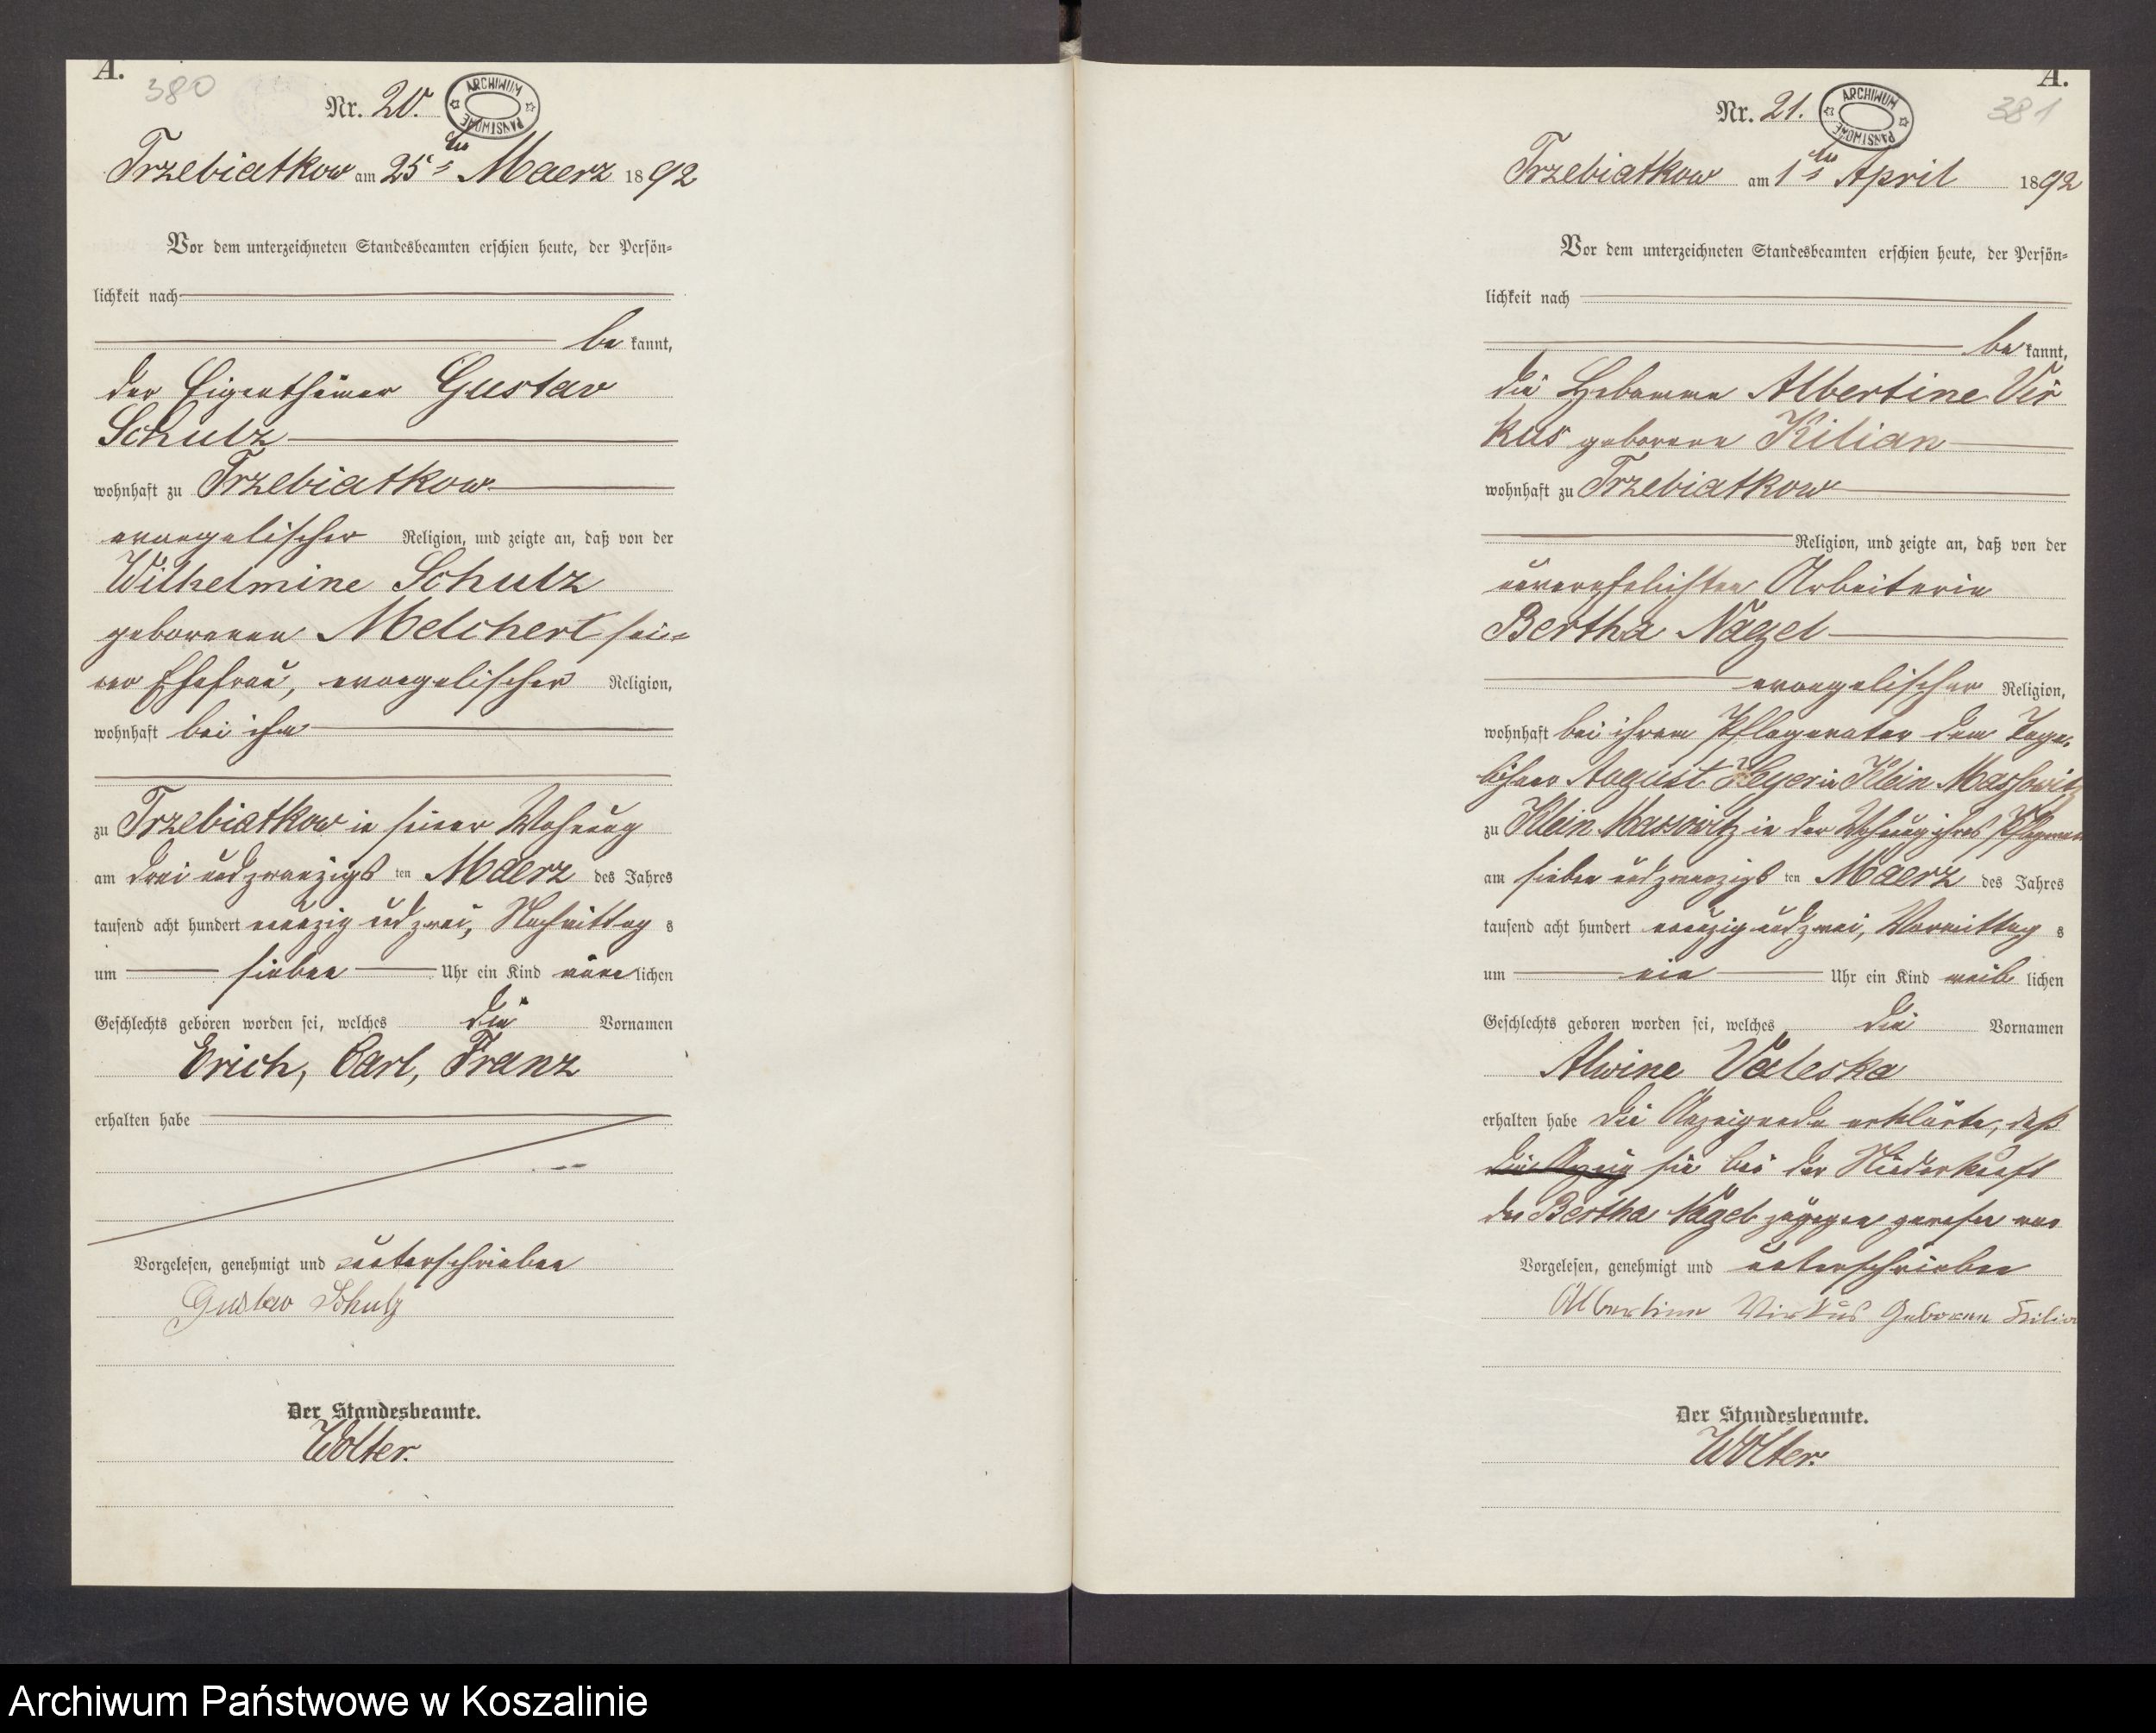 A.
380
Nr. 20.
ARCHIWUM PAŃSTWOWE
Trzebiatkow am 25ten Maerz 1892
Vor dem unterzeichneten Standesbeamten erschien heute, der Persön-
lichkeit nach
be kannt,
der Eigenthümer Gustav
Schulz
wohnhaft zu Trzebiatkow
evangelischer Religion, und zeigte an, daß von der
Wilhelmine Schulz
geborenen Melchert sei-
ner Ehefrau, evangelischer Religion,
wohnhaft bei ihm
zu Trzebiatkow in seiner Wohnung
am drei und zwanzigs ten Maerz des Jahres
tausend acht hundert neunzig und zwei, Nachmittag s
um sieben Uhr ein Kind männ lichen
Geschlechts geboren worden sei, welches die Vornamen
Erich, Carl, Franz
erhalten habe
Vorgelesen, genehmigt und unterschrieben
Gustav Schulz
Der Standesbeamte.
Wolter.
A.
381
Nr. 21.
ARCHIWUM PAŃSTWOWE
Trzebiatkow am 1ten April 1892
Vor dem unterzeichneten Standesbeamten erschien heute, der Persön-
lichkeit nach
be kannt,
die Hebamme Albertine Vir
kus geborene Kilian
wohnhaft zu Trzebiatkow
Religion, und zeigte an, daß von der
unverehelichten Arbeiterin
Bertha Nagel
evangelischer Religion,
wohnhaft bei ihrem Pflegevater dem Tage-
löhner August in Klein Massowitz
zu Klein Massowitz in der Wohnung ihres
am sieben und zwanzigs ten Maerz des Jahres
tausend acht hundert neunzig und zwei, Vormittag s
um ein Uhr ein Kind weib lichen
Geschlechts geboren worden sei, welches die Vornamen
Alwine Valeska
erhalten habe Die Anzeigende erklärte, daß
sie bei der Niederkunft
der Bertha Nagel zugegen gewesen war
Vorgelesen, genehmigt und unterschrieben
Albertine Virkus Geborene Kilian
Der Standesbeamte.
Wolter.
Archiwum Państwowe w Koszalinie